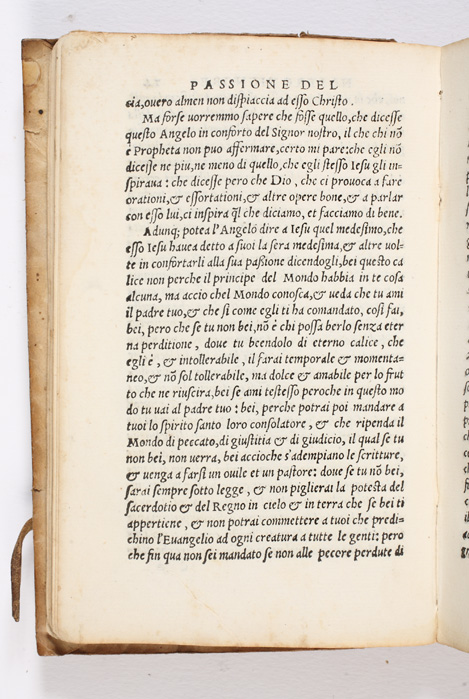 PASSIONE DEL
cia, ouero almen non dispiaccia ad esso Christo.
Ma forse uorremmo sapere che fosse quello, che dicesse
questo Angelo in conforto del Signor nostro, il che chi nō
è Propheta non puo affermare, certo mi pare: che egli nō
dicesse ne piu, ne meno di quello, che egli stesso Iesu gli in=
spiraua: che dicesse pero che Dio, che ci prouoca a fare
orationi, & essortationi, & altre opere bone, & a parlar
con esso lui, ci inspira q̄l che diciamo, et facciamo di bene.
Adunq; potea l'Angelo dire a Iesu quel medesimo, che
esso Iesu hauea detto a suoi la sera medesima, & altre uol=
te in confortarli alla sua passione dicendogli, bei questo ca
lice non perche il principe del Mondo habbia in te cosa
alcuna, ma accio chel Mondo conosca, & ueda che tu ami
il padre tuo, & che si come egli ti ha comandato, cosi fai,
bei, pero che se tu non bei, nō è chi possa berlo senza eter
na perditione, doue tu beendolo di eterno calice, che
egli è, & intollerabile, il farai temporale & momenta=
neo, & nō sol tollerabile, ma dolce & amabile per lo frut
to che ne riuscira, bei se ami testesso peroche in questo mo
do tu uai al padre tuo: bei, perche potrai poi mandare a
tuoi lo spirito santo loro consolatore, & che riprenda il
Mondo di peccato, di giustitia & di giudicio, il qual se tu
non bei, non uerra, bei accioche s'adempiano le scritture,
& uenga a farsi un ouile et un pastore: doue se tu nō bei,
sarai sempre sotto legge, & non piglierai la potesta del
sacerdotio & del Regno in cielo & in terra che se bei ti
appertiene, & non potrai commettere a tuoi che predi=
chino l'Euangelio ad ogni creatura a tutte le genti: pero
che fin qua non sei mandato se non alle pecore perdute di